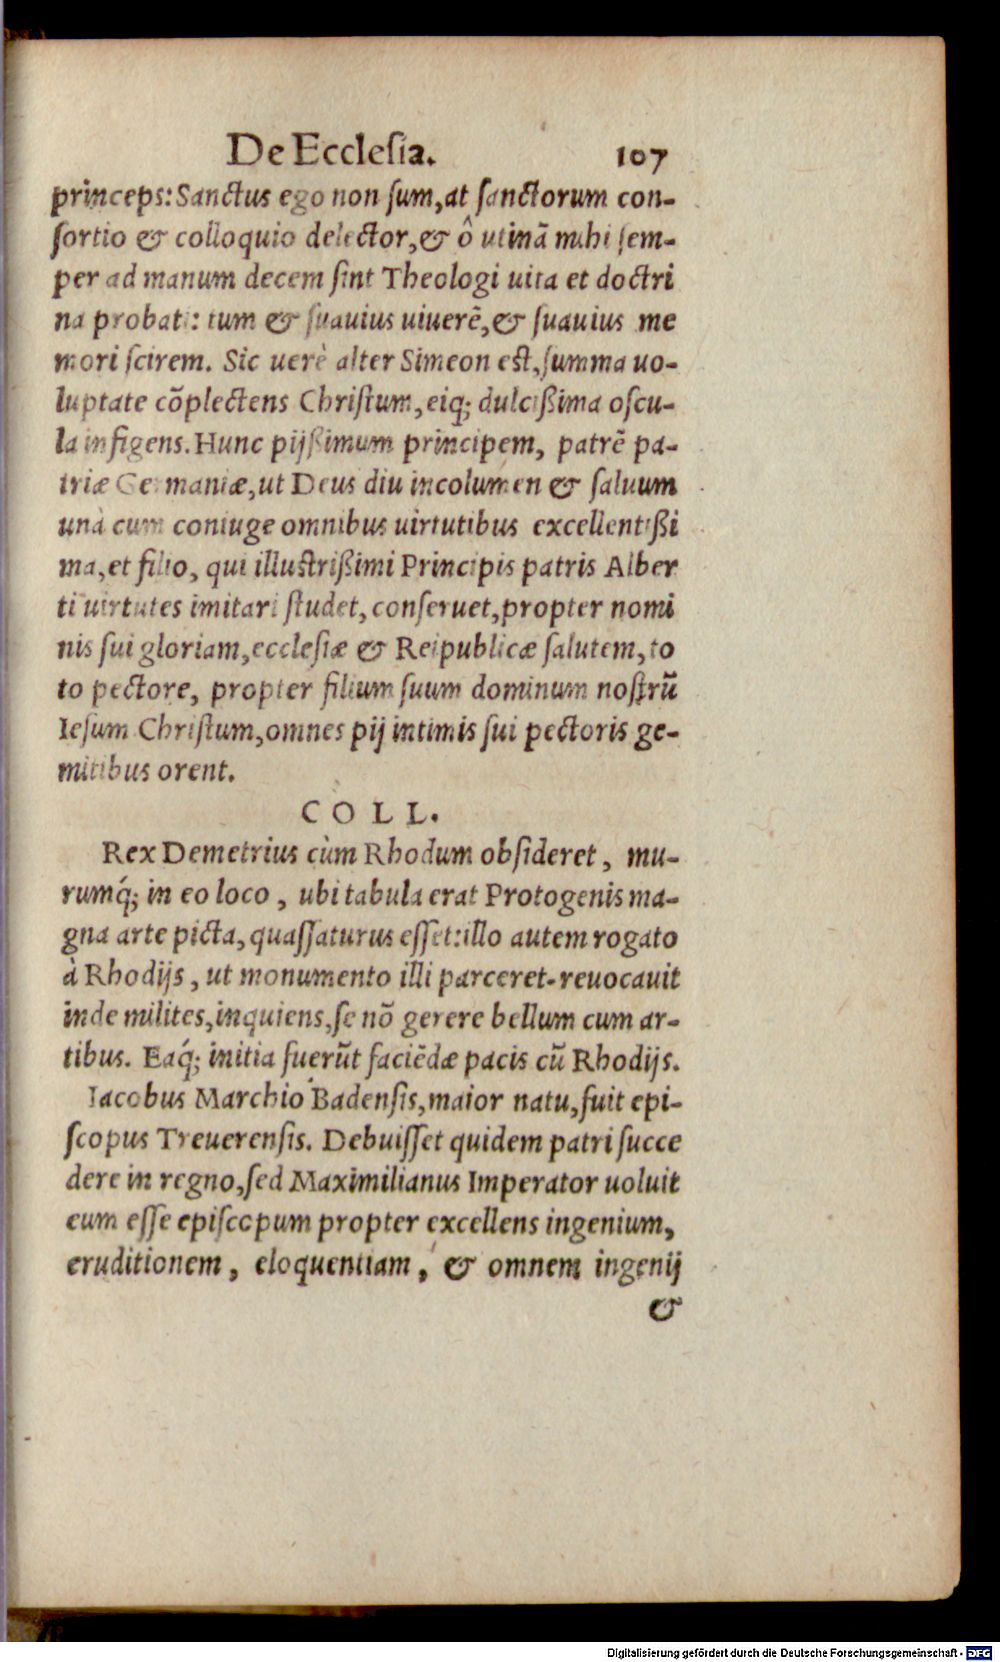 De Ecclesia. 107
princeps: Sanctus ego non sum, at sanctorum con-
sortio & colloquio delector, & ô utinã mihi sem-
per ad manum decem sint Theologi uita et doctri
na probati: tum & suauius uiuerẽ, & suauius me
mori scirem. Sic uerè alter Simeon est, summa uo-
luptate cõplectens Christum, eiq; dulcißima oscu-
la infigens. Hunc pijßimum principem, patrẽ pa-
triæ Germaniæ, ut Deus diu incolumen & saluum
unà cum coniuge omnibus uirtutibus excellentißi
ma, et filio, qui illustrißimi Principis patris Alber
ti uirtutes imitari studet, conseruet, propter nomi
nis sui gloriam, ecclesiæ & Reipublicæ salutem, to
to pectore, propter filium suum dominum nostrũ
Iesum Christum, omnes pij intimis sui pectoris ge-
mitibus orent.
COLL.
Rex Demetrius cùm Rhodum obsideret, mu-
rumq́; in eo loco, ubi tabula erat Protogenis ma-
gna arte picta, quassaturus esset: illo autem rogato
à Rhodijs, ut monumento illi parceret. reuocauit
inde milites, inquiens, se nõ gerere bellum cum ar-
tibus. Eaq́; initia fuerũt faciẽdæ pacis cũ Rhodijs.
Iacobus Marchio Badensis, maior natu, fuit epi-
scopus Treuerensis. Debuisset quidem patri succe
dere in regno, sed Maximilianus Imperator uoluit
eum esse episcopum propter excellens ingenium,
eruditionem, eloquentiam, & omnem ingenij
&
Digitalisierung gefördert durch die Deutsche Forschungsgemeinschaft - DFG